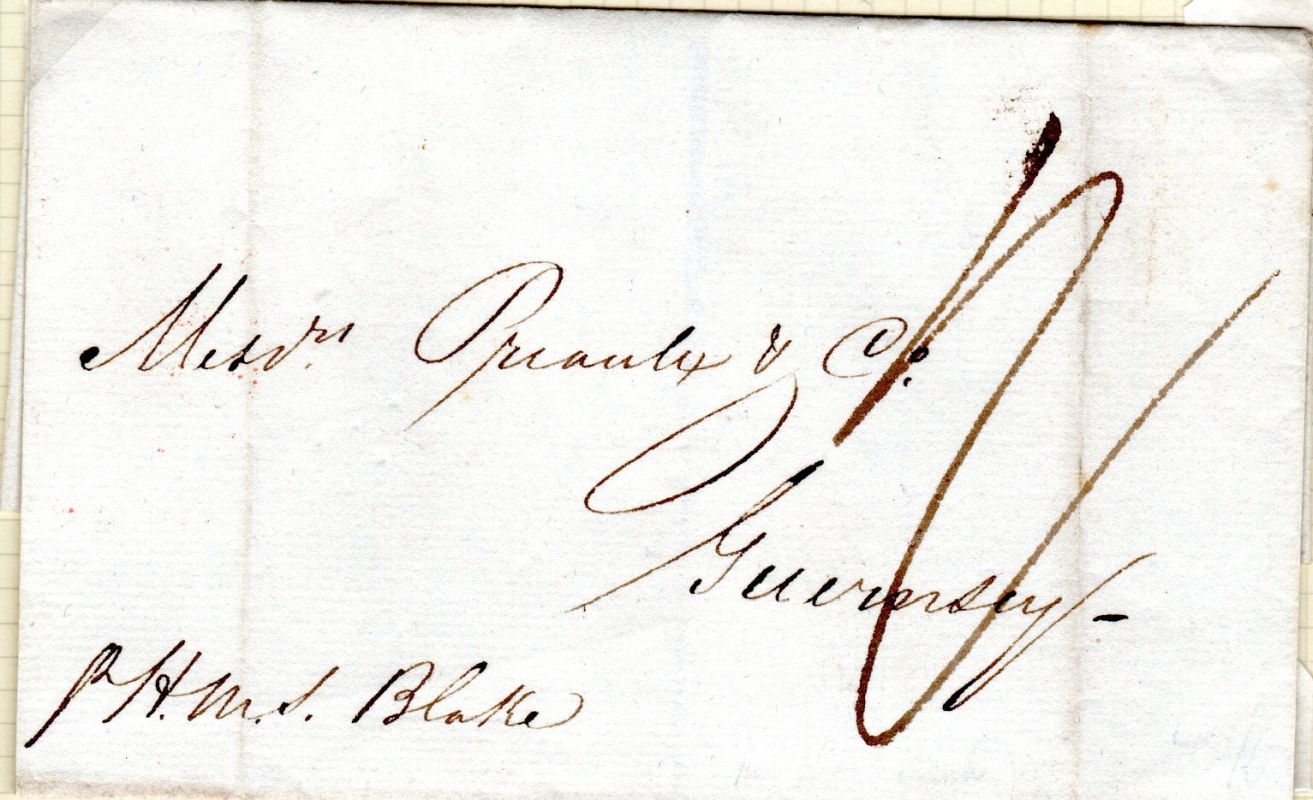 Messrs Priaulx & Co.
Guernsey -
p H.M.S. Blake